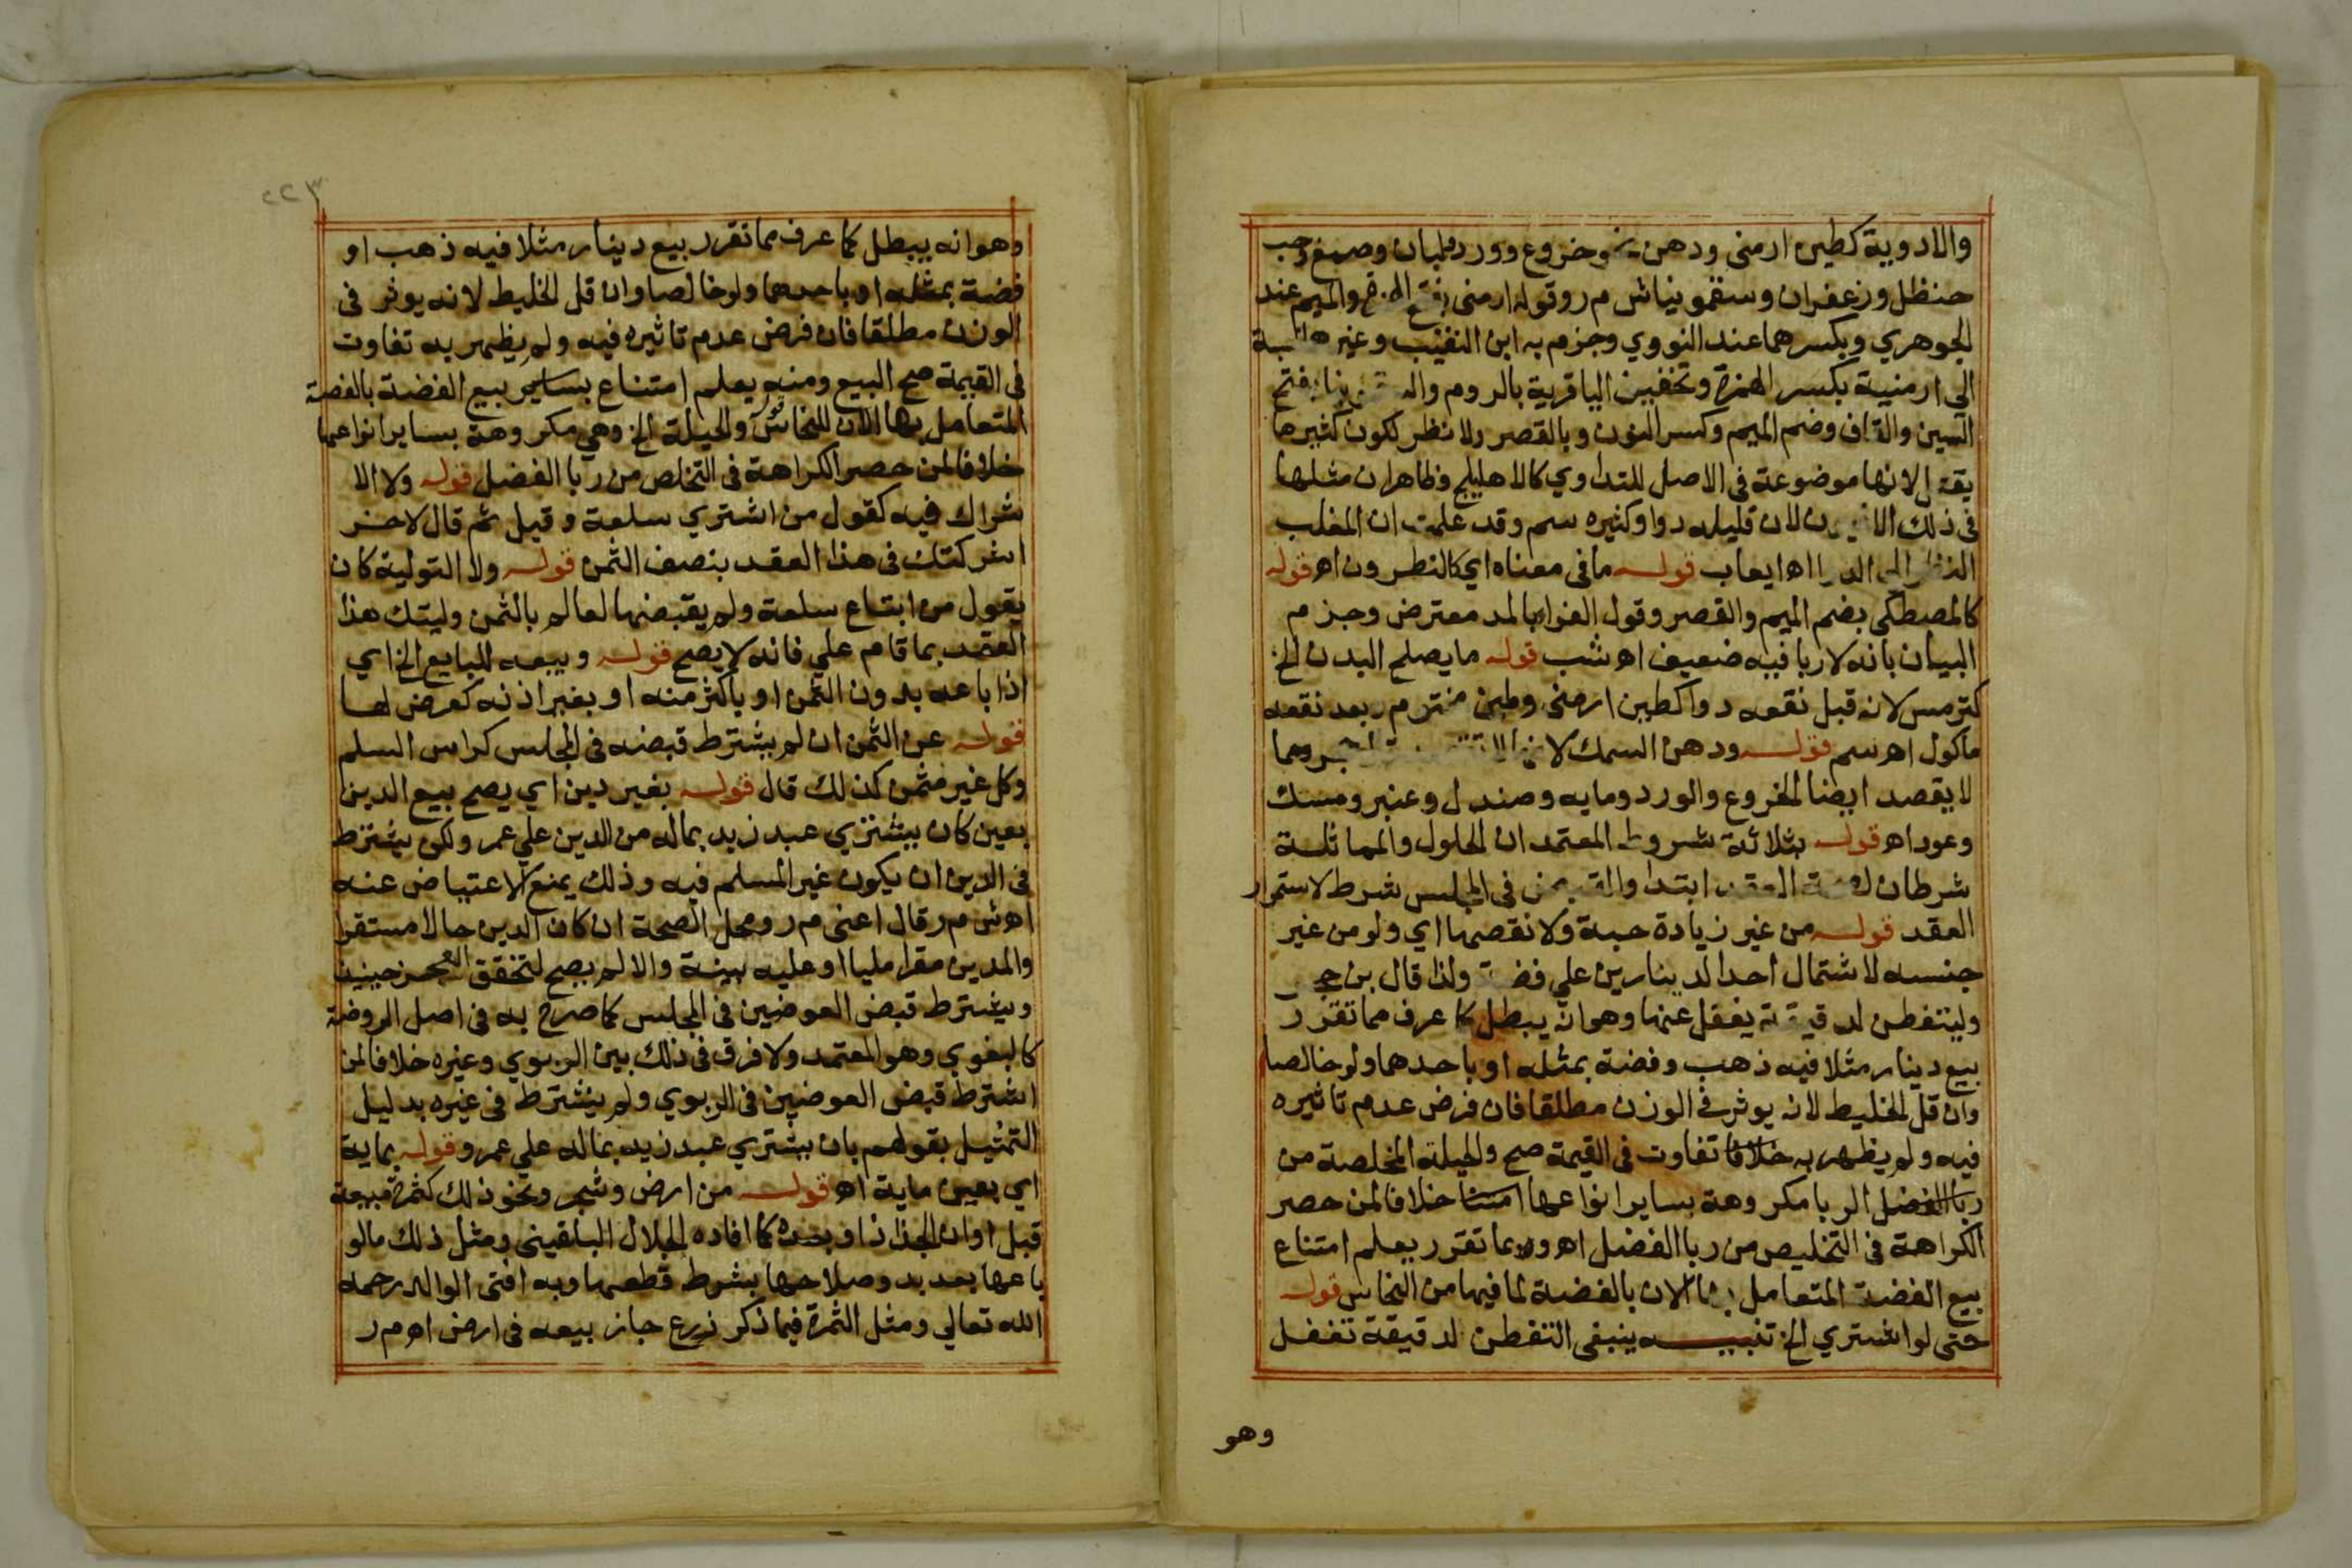 والادوية كطين ارمنى ودهن نحو خروع وورد ولبان وصمغ وحب
حنظل وزعفران وسقمونياش م ر وقوله ارمنى بفتح والميم عند
الجوهري وبكسرهما عند النووي وجزم به ابن النقيب وغيره
الي ارمنية بكسر الهمزة وتخفيف اليا قرية بالروم بفتح
السين والقاف وضم الميم وكسر النون وبالقصر ولا نظر لكون كثيرها
يقتل لانها موضوعة فى الاصل للتداوي كالاهليلج وظاهر ان مثلها
فى ذلك لان قليله دوا وكثيره سم وقد علمت ان المغلب
النظر الى اه ايعاب قوله ما فى معناه اي كالنطرون اه قوله
كالمصطكى بضم الميم والقصر وقول الفرا بالمد معترض وجزم
البيان بانه لا ربا فيه ضعيف اه شب قوله ما يصلح البدن الخ
كترمس لانه قبل نقعه دوا كطين ارمنى وطين م ر بعد نقعه
ماكول اه سم قوله ودهن السمك
لا يقصد ايضا الخروع والورد ومايه وصندل وعنبر ومسك
وعود اه قوله بثلاثة شروط المعتمد ان الحلول والمماثلة
شرطان العقد ابتدا فى المجلس شرط لاستمرار
العقد قوله من غير زيادة حبة ولا نقصها اي ولو من غير
جنسه لاشتمال احد الدينارين علي فضة ولذا قال بن حجر
وليتفطن لدقيقة يغفل عنها وهو انه يبطل كما عرف مما تقرر
بيع دينار مثلا فيه ذهب وفضة بمثله او باحدهما ولو خالصا
وان قل الخليط لانه يوثر فى الوزن مطلقا فان فرض عدم تاثيره
فيه ولم يظهر به خلافا تفاوت فى القيمة صح والحيلة المخلصة من
ربا الفضل الربا مكروهة بساير انواعها امتنا خلافا لمن حصر
الكراهة فى التخليص من ربا الفضل اه ومما تقرر يعلم امتناع
بيع الفضة المتعامل بها الان بالفضة لما فيها من النحاس قوله
حتى لو اشتري الخ تنبيه ينبغى التفطن لدقيقة تغفل
وهو
٢٢٣
وهو انه يبطل كما عرف مما تقرر بيع دينار مثلا فيه ذهب او
فضة بمثله او باحدهما ولو خالصا وان قل الخليط لانه يوثر فى
الوزن مطلقا فان فرض عدم تاثيره فيه ولم يظهر به تفاوت
فى القيمة صح البيع ومنه يعلم امتناع بساير بيع الفضة بالفضة
المتعامل بها الان للنحاس والحيلة الخ وهي مكروهة بساير انواعها
خلافا لمن حصر الكراهة فى التخلص من ربا الفضل قوله ولا الا
شراك فيه كقول من اشتري سلعة وقيل ثم قال لاخر
اشركتك فى هذا العقد بنصف الثمن قوله ولا التولية كان
يقول من ابتاع سلعة ولم يقبضها لعالم بالثمن وليتك هذا
العقد بما قام علي فانه لا يصح قوله وبيعه للبايع الخ اي
اذا باعه بدون الثمن او باكثر منه او بغير اذنه كعرض لها
قوله عن الثمن ان لم يشترط قبضه فى المجلس كراس السلم
وكل غير مثمن كذلك قال قوله بغير دين اي يصح بيع الدين
بعين كان يشتري عبد زيد بماله من الدين علي عمر ولكن يشترط
فى الدين ان يكون غير المسلم فيه وذلك يمنع الاعتياض عنه
اه ش م ر قال اعنى م ر ومحل الصحة ان كان الدين حالا مستقرا
والمدين مقرا مليا او عليه بينة والا لم يصح لتحقق العجز حينيذ
ويشترط قبض العوضين فى المجلس كما صرح به فى اصل الروضة
كالبغوي وهو المعتمد ولا فرق فى ذلك بين الربوي وغيره خلافا لمن
اشترط قبض العوضين فى الربوي ولم يشترط فى غيره بدليل
التمثيل بقولهم بان يشتري عبد زيد بماله علي عمر وقوله بماية
اي بعين ماية اه قوله من ارض وشجر ونحو ذلك كثمرة مبيعة
قبل اوان الجذاذ او بعده كما افاده الجلال البلقينى ومثل ذلك ما لو
باعها بعد بدو صلاحها بشرط قطعها وبه افتى الوالد رحمه
الله تعالي ومثل الثمرة فيما ذكر زرع جاز بيعه فى ارض اه م ر